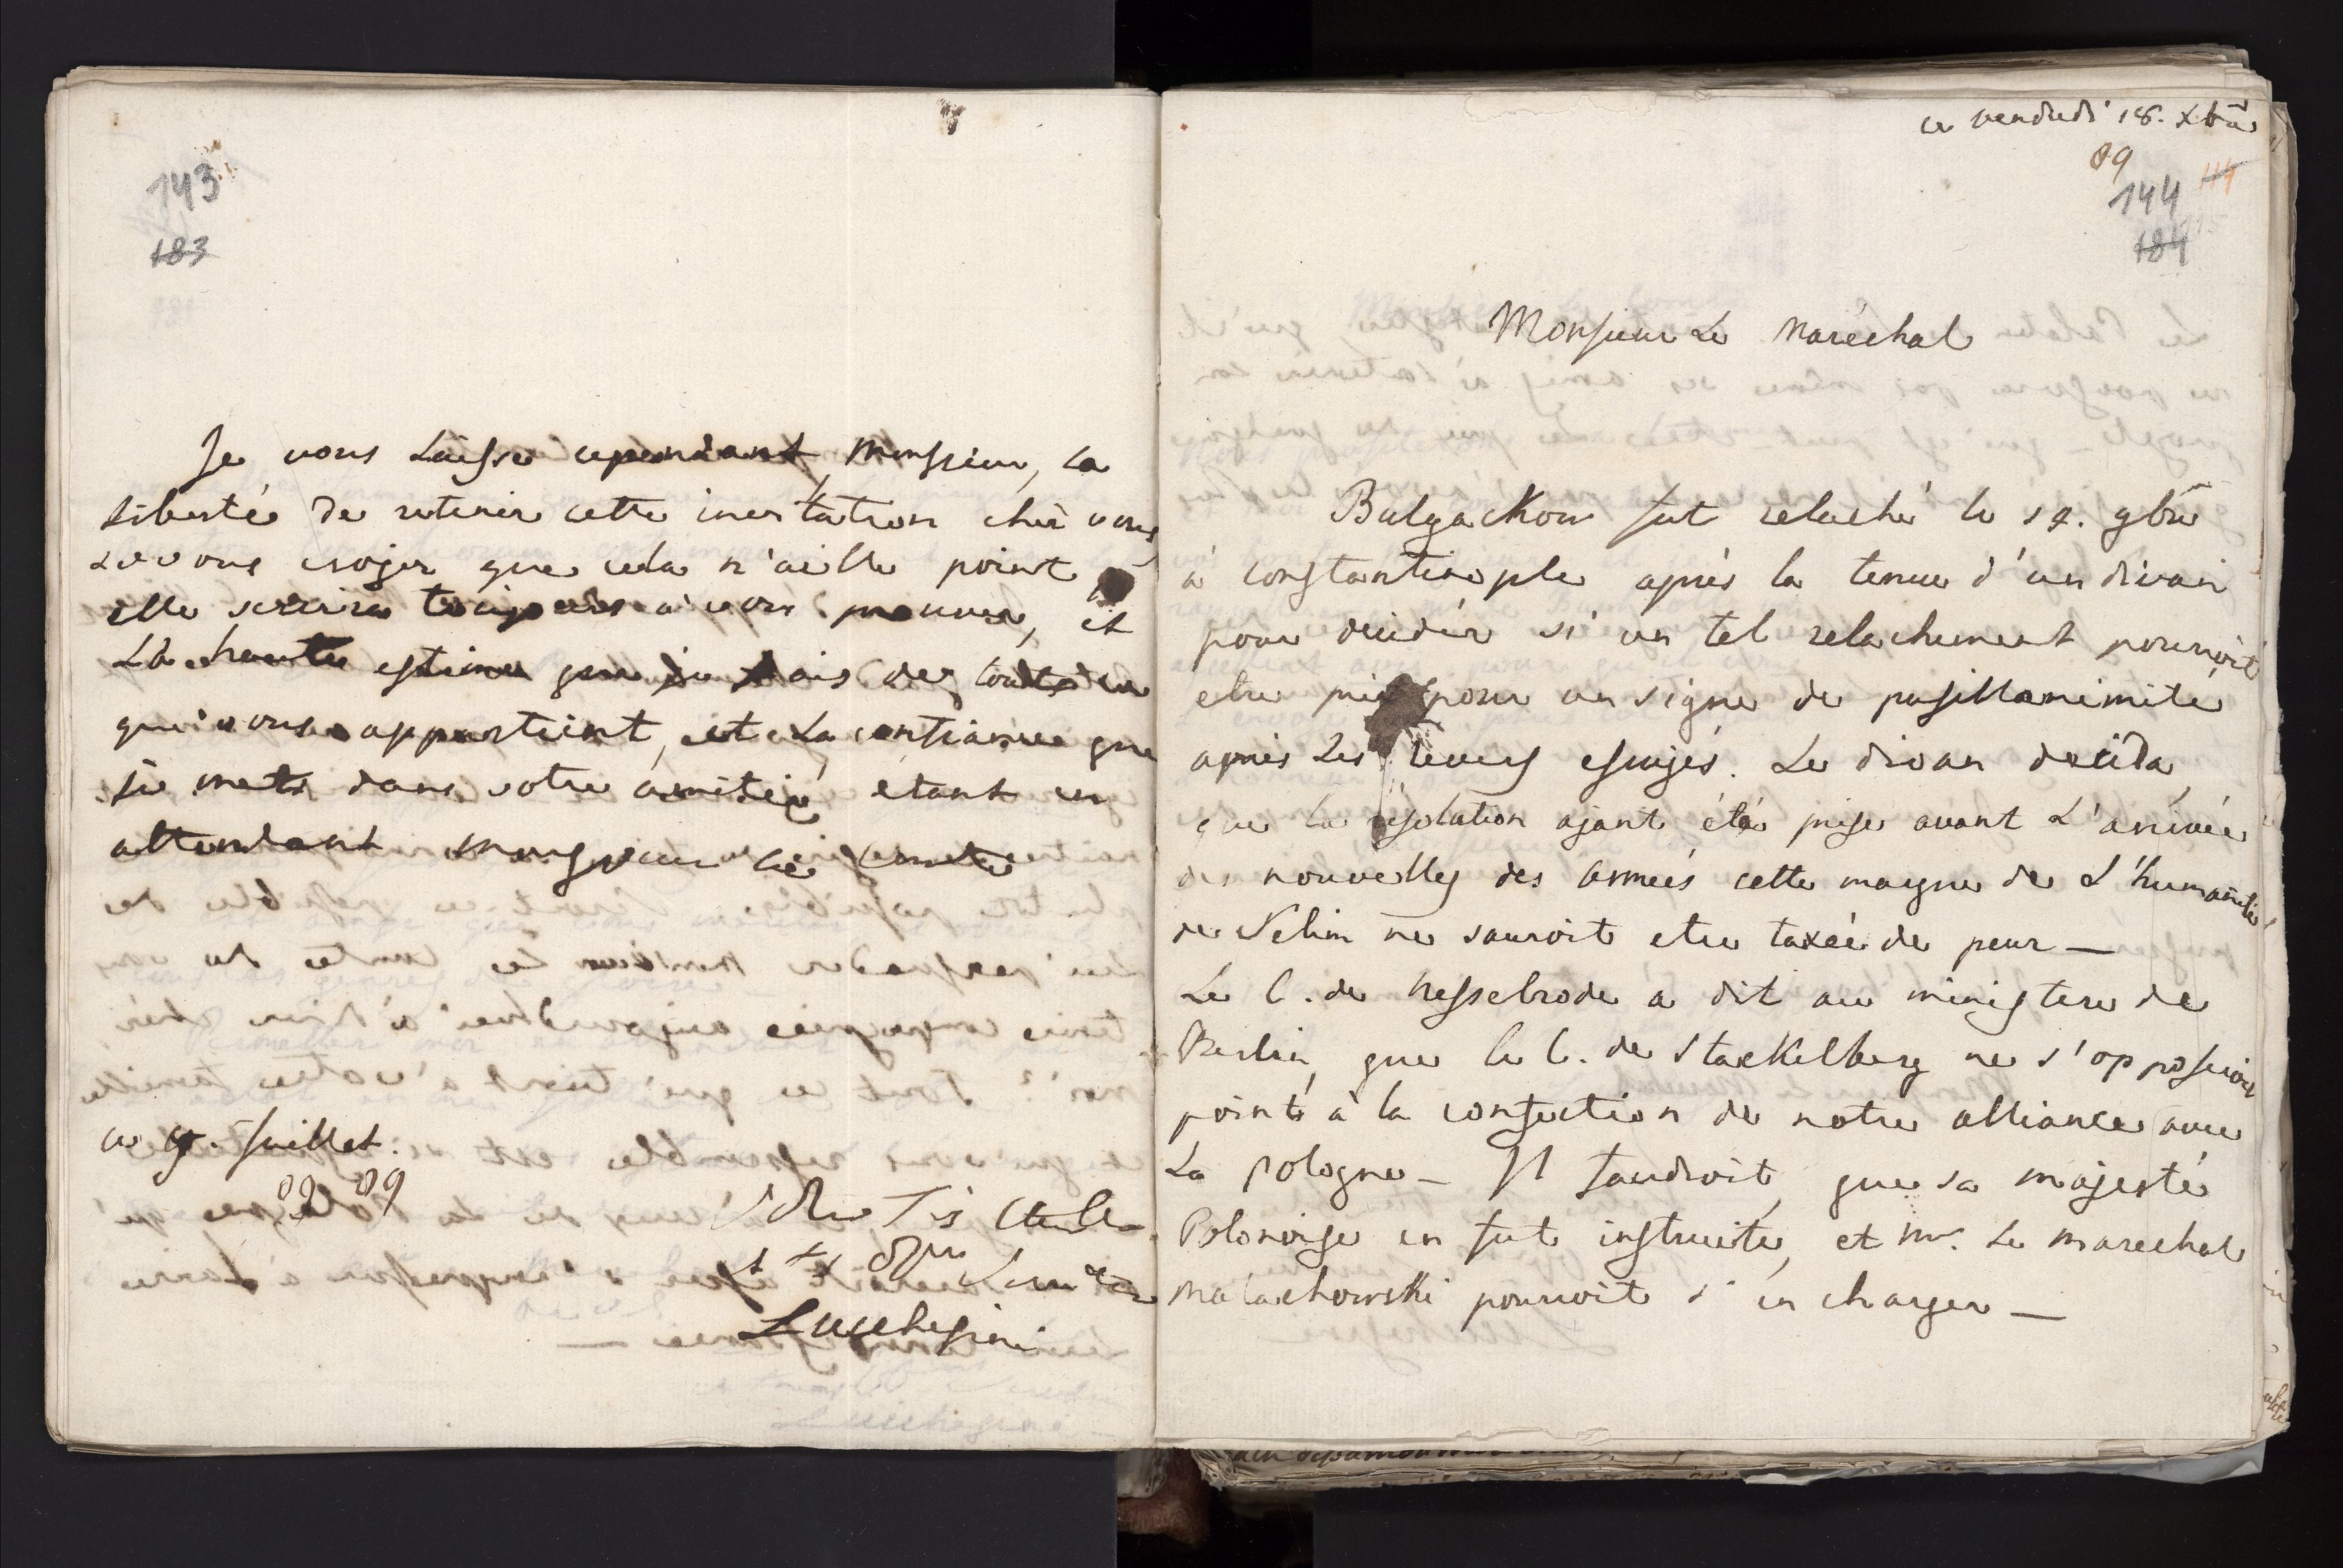 143
183
Je vous laisse cependant, Monsieur, la
liberté de retenir cette invitation chez vous
si vous croyez que cela n'aille point
elle servira toujours à vous prouver, et
la haute estime que je fais de tout ce
qui vous appartient, et la confiance que
je mets dans votre amitié étant en
attendant Monsieur le Comte
ce 9. Juillet.
89 89
Votre Très
et très Obeis
Lucchesini
ce vendredi 18. Xbre
89
144 117
184
Monsieur Le Maréchal
Bulgackow fut relaché le 9bre
à Constantinople après la tenue d'un divan
pour decider si un tel relachement pourroit
etre pris pour un signe de pusillanimité
après les revers essuyés. Le divan decida,
que la résolution ayant été prise avant l'arrivée
des nouvelles des Armées cette marque de l'humanité
de Selim ne sauroit etre taxée de peur —
Le C. de Nesselrode a dit au ministere de
Berlin, que le C. de Stackelberg ne s'opposeroit
point à la confection de notre alliance avec
La Pologne — Il faudroit, que sa majesté
Polonoise en fut instruite, et Mr. Le Marechal
Malachowski pourroit s'en charger —